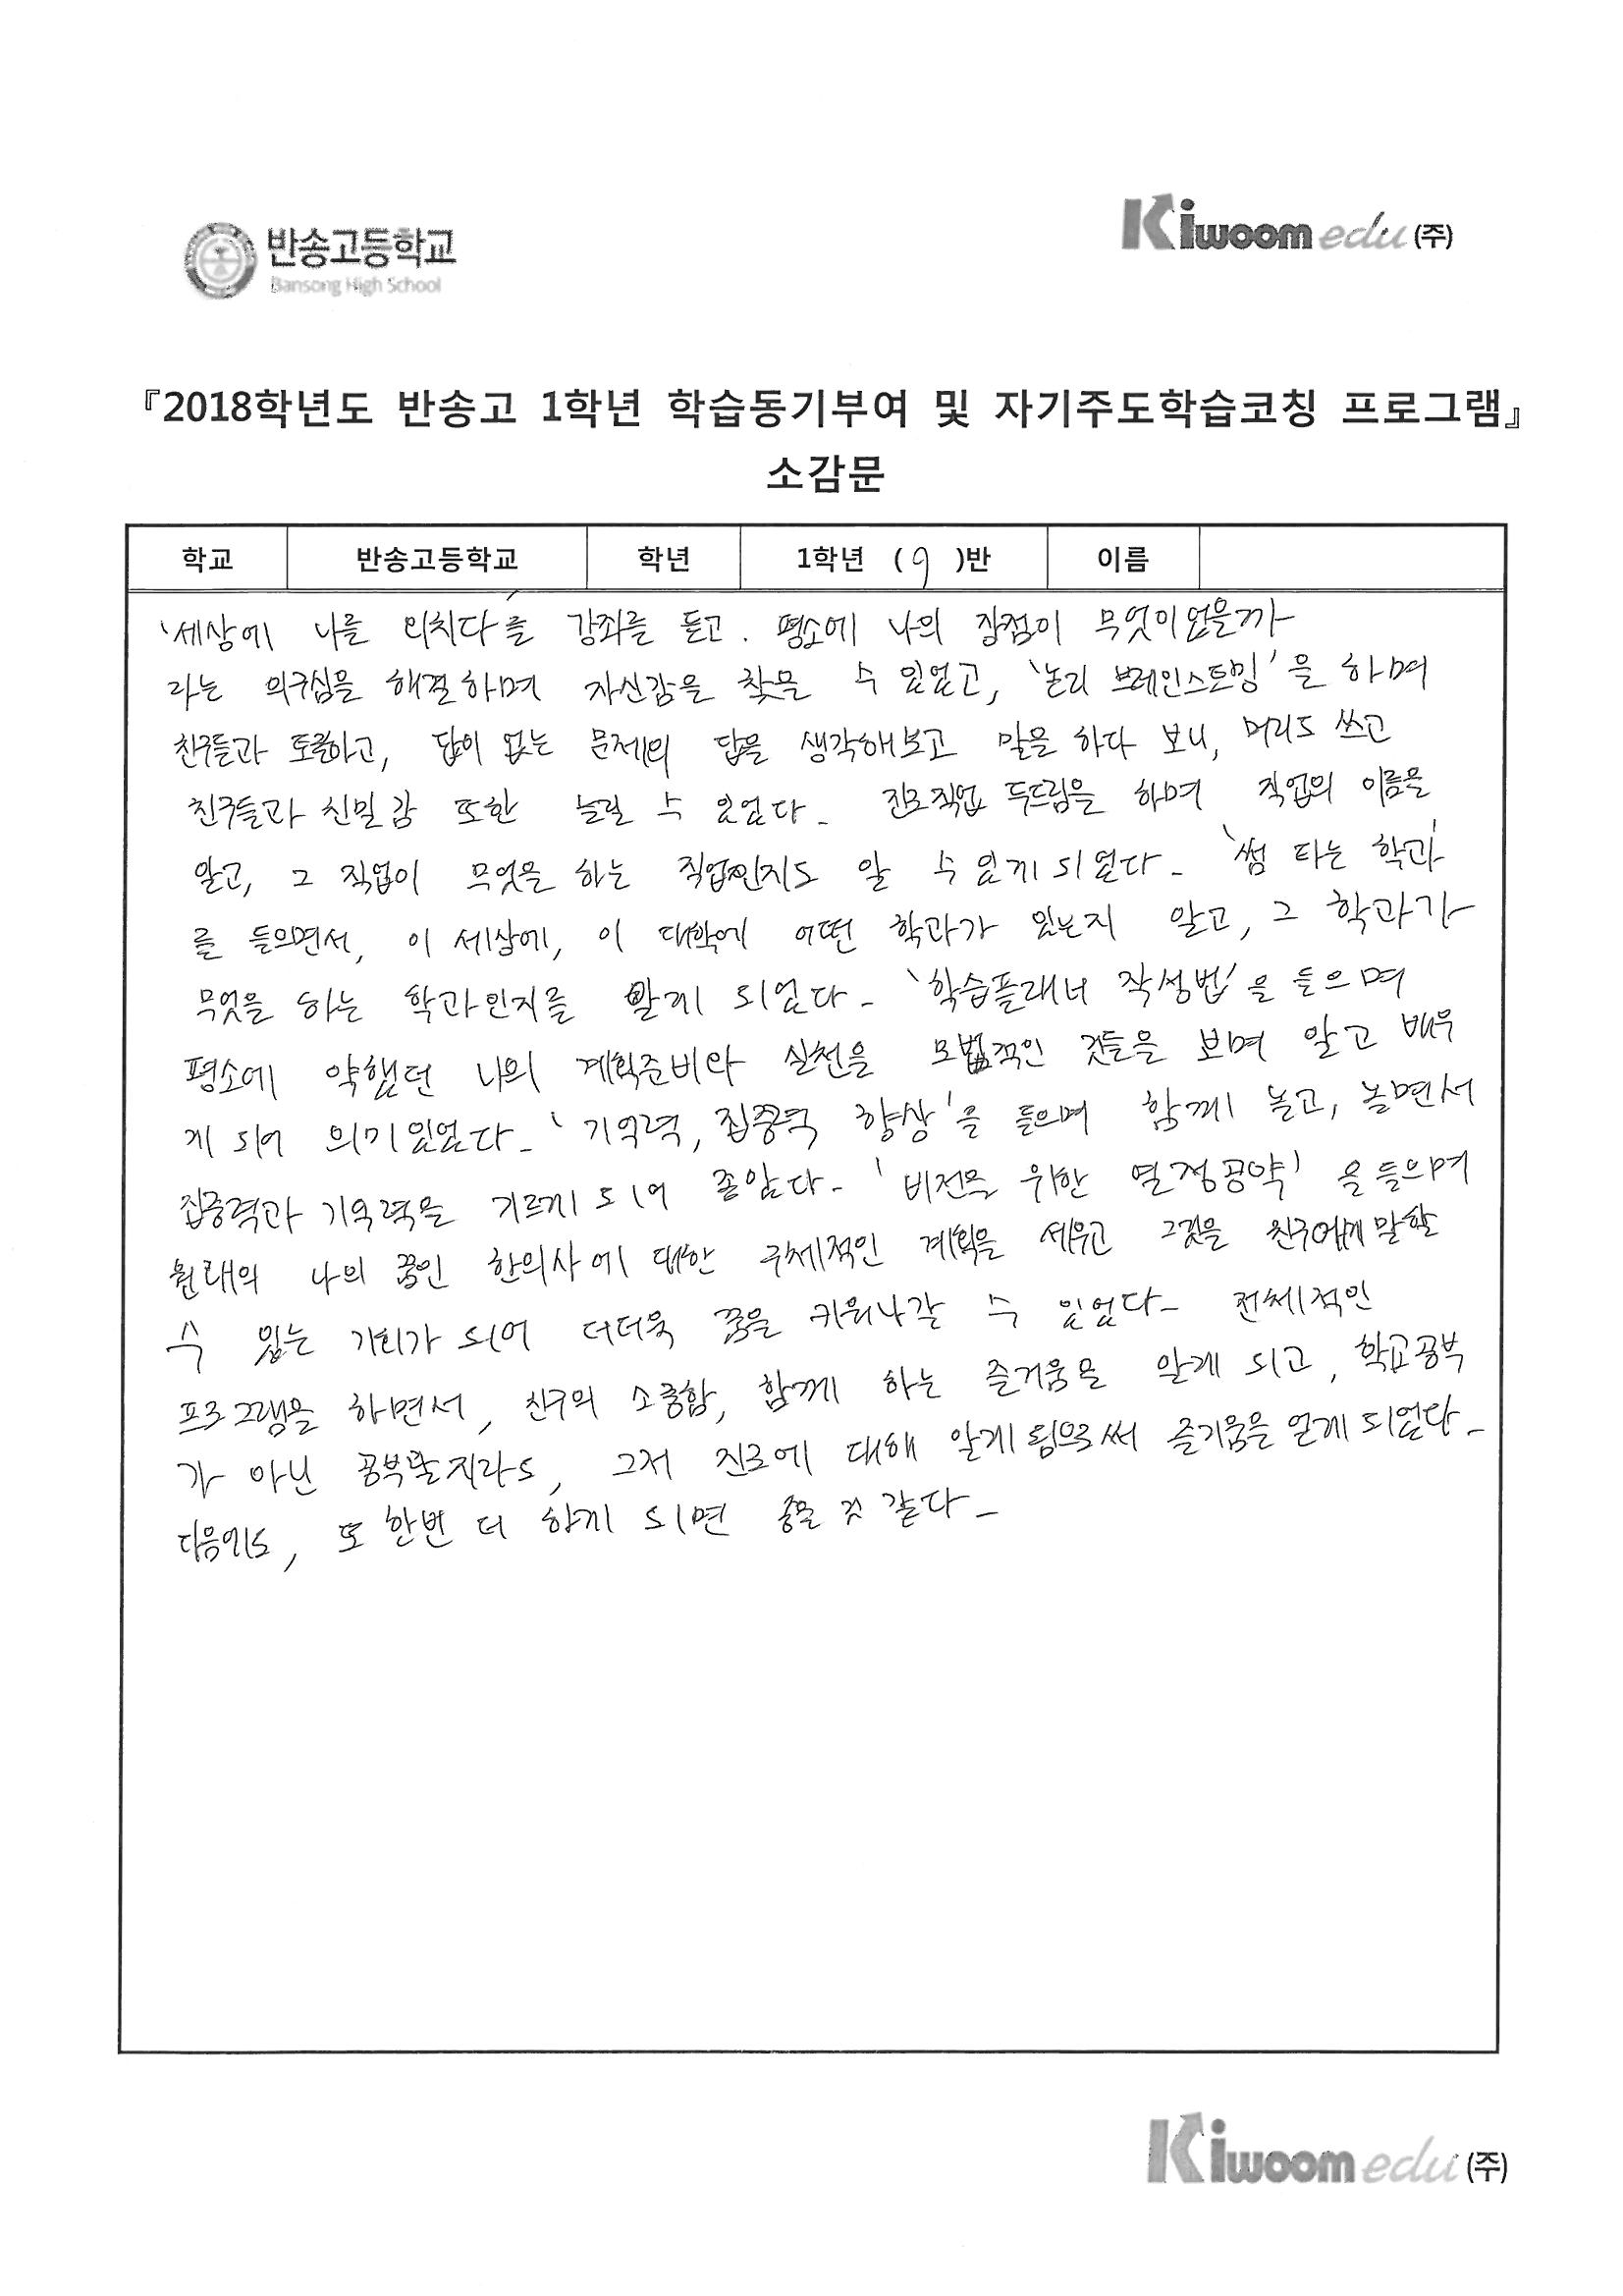 반송고등학교
Bansong High School
Kiwoom edu (주)
『2018학년도 반송고 1학년 학습동기부여 및 자기주도학습코칭 프로그램』
소감문
학교 반송고등학교 학년 1학년 (9)반 이름
'세상에 나를 외치다'를 강좌를 듣고. 평소에 나의 장점이 무엇이었을까
라는 의구심을 해결하며 자신감을 찾을 수 있었고, '논리 브레인스토밍'을 하며
친구들과 토론하고, 답이 없는 문제의 답을 생각해보고 말을 하다 보니, 머리도 쓰고
친구들과 친밀감 또한 늘릴 수 있었다. 진로직업 두드림을 하며 직업의 이름을
알고, 그 직업이 무엇을 하는 직업인지도 알 수 있게 되었다. '썸 타는 학과'
를 들으면서, 이 세상에, 이 대학에 어떤 학과가 있는지 알고, 그 학과가
무엇을 하는 학과인지를 알게 되었다. '학습플래너 작성법'을 들으며
평소에 약했던 나의 계획준비와 실천을 모범적인 것들을 보며 알고 배우
게 되어 의기있었다. '기억력, 집중력 향상'을 들으며 함께 놀고, 놀면서
집중력과 기억력을 기르게 되어 좋았다. '비전을 위한 열정공약'을 들으며
원래의 나의 꿈인 한의사에 대한 구체적인 계획을 세우고 그것을 친구에게 말할
수 있는 기회가 되어 더더욱 꿈을 키워나갈 수 있었다. 전체적인
프로그램을 하면서, 친구의 소중함, 함께 하는 즐거움을 알게 되고, 학교공부
가 아닌 공부일지라도, 그저 진로에 대해 알게 됨으로써 즐거움을 얻게 되었다.
다음에도, 또 한번 더 하게 되면 좋을 것 같다.
Kiwoom edu (주)